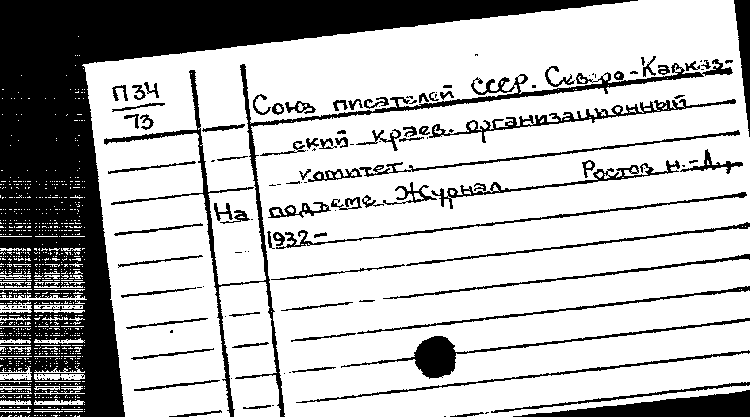 П34
73
Союз писателей СССР. Северо-Кавказ-
ский краев. организационный
комитет.
На подъеме. Журнал. Ростов н.-Д.,
1932-